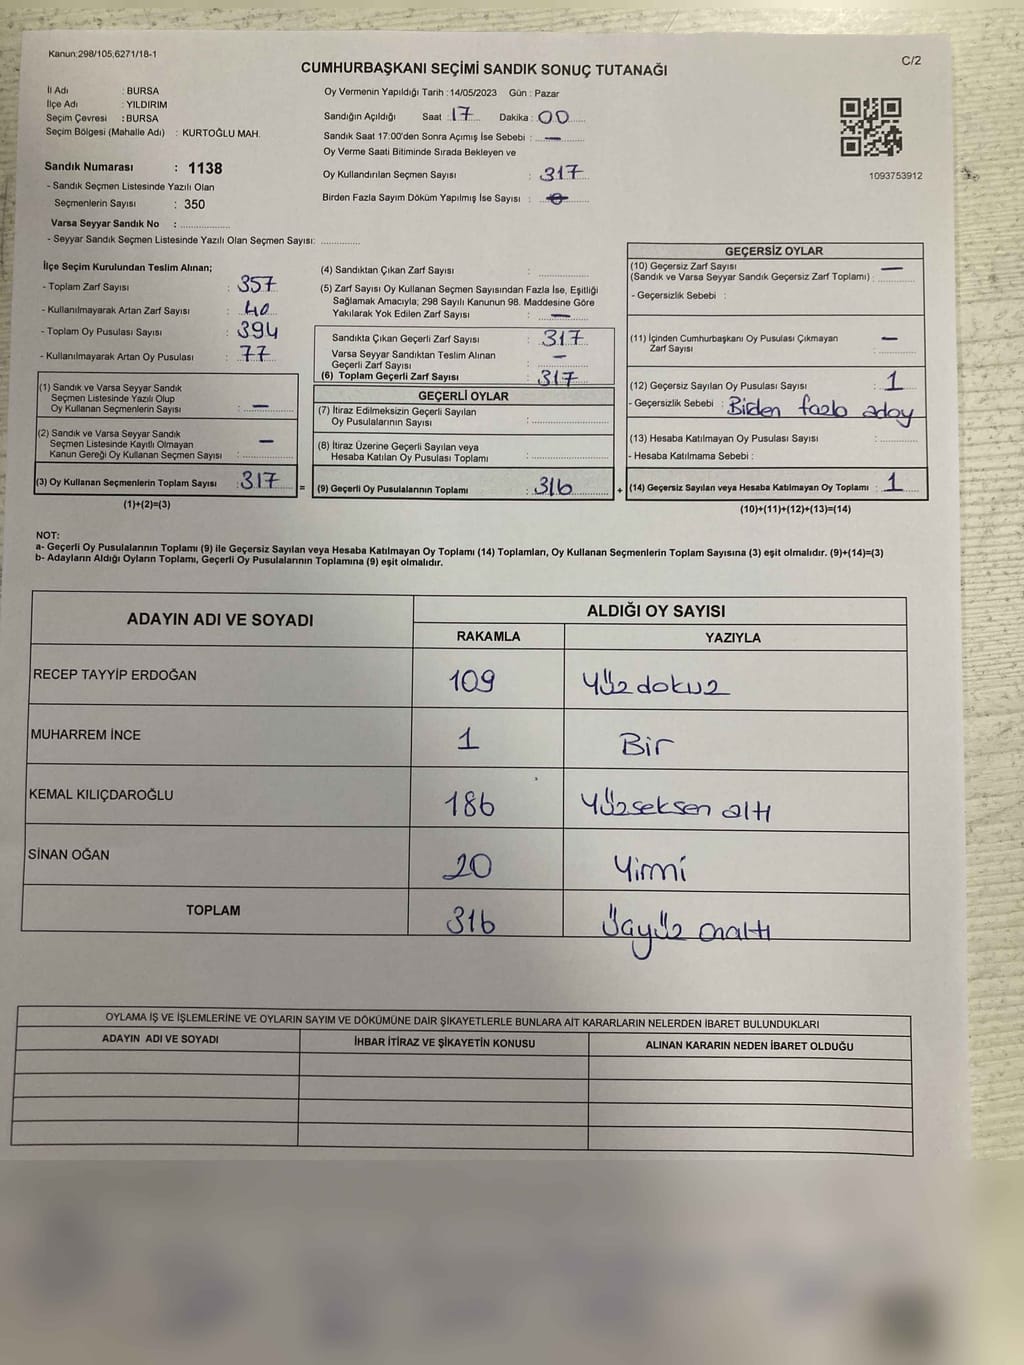 Kanun:298/105,6271/18-1
C/2
CUMHURBAŞKANI SEÇİMİ SANDIK SONUÇ TUTANAĞI
İl Adı : BURSA
İlçe Adı : YILDIRIM
Seçim Çevresi : BURSA
Seçim Bölgesi (Mahalle Adı) : KURTOĞLU MAH.
Sandık Numarası : 1138
- Sandık Seçmen Listesinde Yazılı Olan
Seçmenlerin Sayısı : 350
Varsa Seyyar Sandık No : ....................
- Seyyar Sandık Seçmen Listesinde Yazılı Olan Seçmen Sayısı: ...............
Oy Vermenin Yapıldığı Tarih : 14/05/2023 Gün : Pazar
Sandığın Açıldığı Saat : 17 Dakika : 00
Sandık Saat 17:00'den Sonra Açımış İse Sebebi : —
Oy Verme Saati Bitiminde Sırada Bekleyen ve
Oy Kullandırılan Seçmen Sayısı : 317
Birden Fazla Sayım Döküm Yapılmış İse Sayısı :
1093753912
İlçe Seçim Kurulundan Teslim Alınan;
- Toplam Zarf Sayısı : 357
- Kullanılmayarak Artan Zarf Sayısı : 40
- Toplam Oy Pusulası Sayısı : 394
- Kullanılmayarak Artan Oy Pusulası : 77
(1) Sandık ve Varsa Seyyar Sandık
Seçmen Listesinde Yazılı Olup
Oy Kullanan Seçmenlerin Sayısı : —
(2) Sandık ve Varsa Seyyar Sandık
Seçmen Listesinde Kayıtlı Olmayan
Kanun Gereği Oy Kullanan Seçmen Sayısı : —
(3) Oy Kullanan Seçmenlerin Toplam Sayısı : 317 =
(1)+(2)=(3)
(4) Sandıktan Çıkan Zarf Sayısı : ...............
(5) Zarf Sayısı Oy Kullanan Seçmen Sayısından Fazla İse, Eşitliği
Sağlamak Amacıyla; 298 Sayılı Kanunun 98. Maddesine Göre
Yakılarak Yok Edilen Zarf Sayısı : —
Sandıkta Çıkan Geçerli Zarf Sayısı : 317
Varsa Seyyar Sandıktan Teslim Alınan
Geçerli Zarf Sayısı : —
(6) Toplam Geçerli Zarf Sayısı : 317
GEÇERLİ OYLAR
(7) İtiraz Edilmeksizin Geçerli Sayılan
Oy Pusulalarının Sayısı : ....................
(8) İtiraz Üzerine Geçerli Sayılan veya
Hesaba Katılan Oy Pusulası Toplamı : ....................
(9) Geçerli Oy Pusulalarının Toplamı : 316 +
GEÇERSİZ OYLAR
(10) Geçersiz Zarf Sayısı
(Sandık ve Varsa Seyyar Sandık Geçersiz Zarf Toplamı) : —
- Geçersizlik Sebebi :
(11) İçinden Cumhurbaşkanı Oy Pusulası Çıkmayan
Zarf Sayısı : —
(12) Geçersiz Sayılan Oy Pusulası Sayısı : 1
- Geçersizlik Sebebi : Birden fazla aday
(13) Hesaba Katılmayan Oy Pusulası Sayısı : ...............
- Hesaba Katılmama Sebebi :
(14) Geçersiz Sayılan veya Hesaba Katılmayan Oy Toplamı : 1
(10)+(11)+(12)+(13)=(14)
NOT:
a- Geçerli Oy Pusulalarının Toplamı (9) ile Geçersiz Sayılan veya Hesaba Katılmayan Oy Toplamı (14) Toplamları, Oy Kullanan Seçmenlerin Toplam Sayısına (3) eşit olmalıdır. (9)+(14)=(3)
b- Adayların Aldığı Oyların Toplamı, Geçerli Oy Pusulalarının Toplamına (9) eşit olmalıdır.
ADAYIN ADI VE SOYADI ALDIĞI OY SAYISI
RAKAMLA YAZIYLA
RECEP TAYYİP ERDOĞAN 109 Yüzdokuz
MUHARREM İNCE 1 Bir
KEMAL KILIÇDAROĞLU 186 Yüzseksen altı
SİNAN OĞAN 20 Yirmi
TOPLAM 316 Üçyüz onaltı
OYLAMA İŞ VE İŞLEMLERİNE VE OYLARIN SAYIM VE DÖKÜMÜNE DAİR ŞİKAYETLERLE BUNLARA AİT KARARLARIN NELERDEN İBARET BULUNDUKLARI
ADAYIN ADI VE SOYADI İHBAR İTİRAZ VE ŞİKAYETİN KONUSU ALINAN KARARIN NEDEN İBARET OLDUĞU